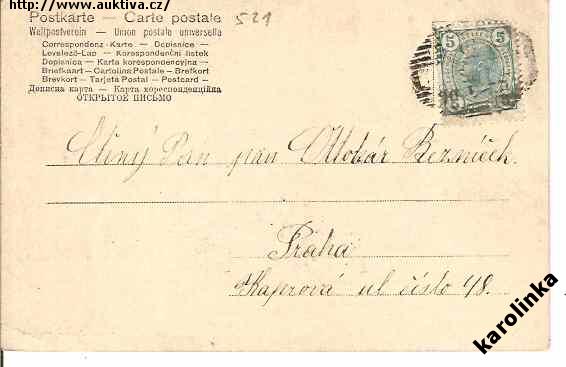 http://www.auktiva.cz/
521
Postkarte — Carte postale
Weltpostverein — Union postale universelle
Correspondenz-Karte — Dopisnice —
Levelező-Lap — Korespondenční lístek
Dopisnica — Karta korespondencyjna —
Briefkaart — Cartolina Postale — Brefkort
Brevkort — Tarjeta Postal — Postcard —
Дописна карта — Карта кореспонденційна
ОТКРЫТОЕ ПИСЬМО
5 5
Ctěný Pan pan Ottokár Rezníček.
Praha
Kaprová ul číslo 48.
karolinka